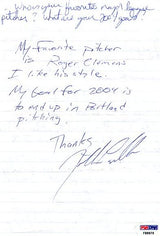 Who is your favorite major league
pitcher? What is your 2004 goals?
My favorite pitcher
is Roger Clemens
I like his style.
My goal for 2004 is
to end up in Portland
pitching.
Thanks
PSA/DNA